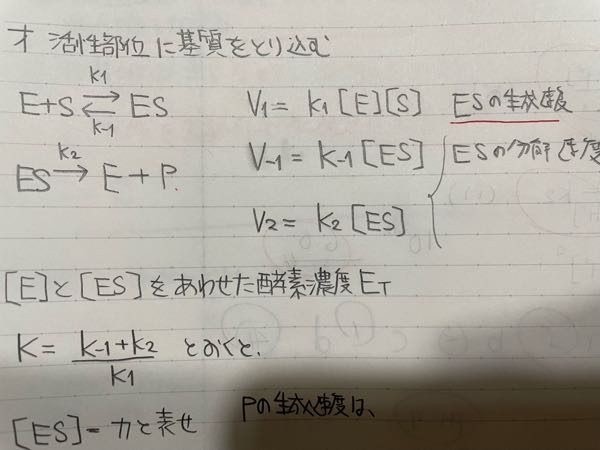 オ 活性部位に基質をとり込む
E+S ⇄ ES
k1
k-1
V1 = k1[E][S] ESの生成速度
V-1 = k-1[ES] ESの分解速度
ES → E + P.
k2
V2 = k2[ES]
[E]と[ES]をあわせた酵素濃度ET
K = (k-1+k2)/k1 とおくと、
[ES]= カと表せ Pの生成速度は、